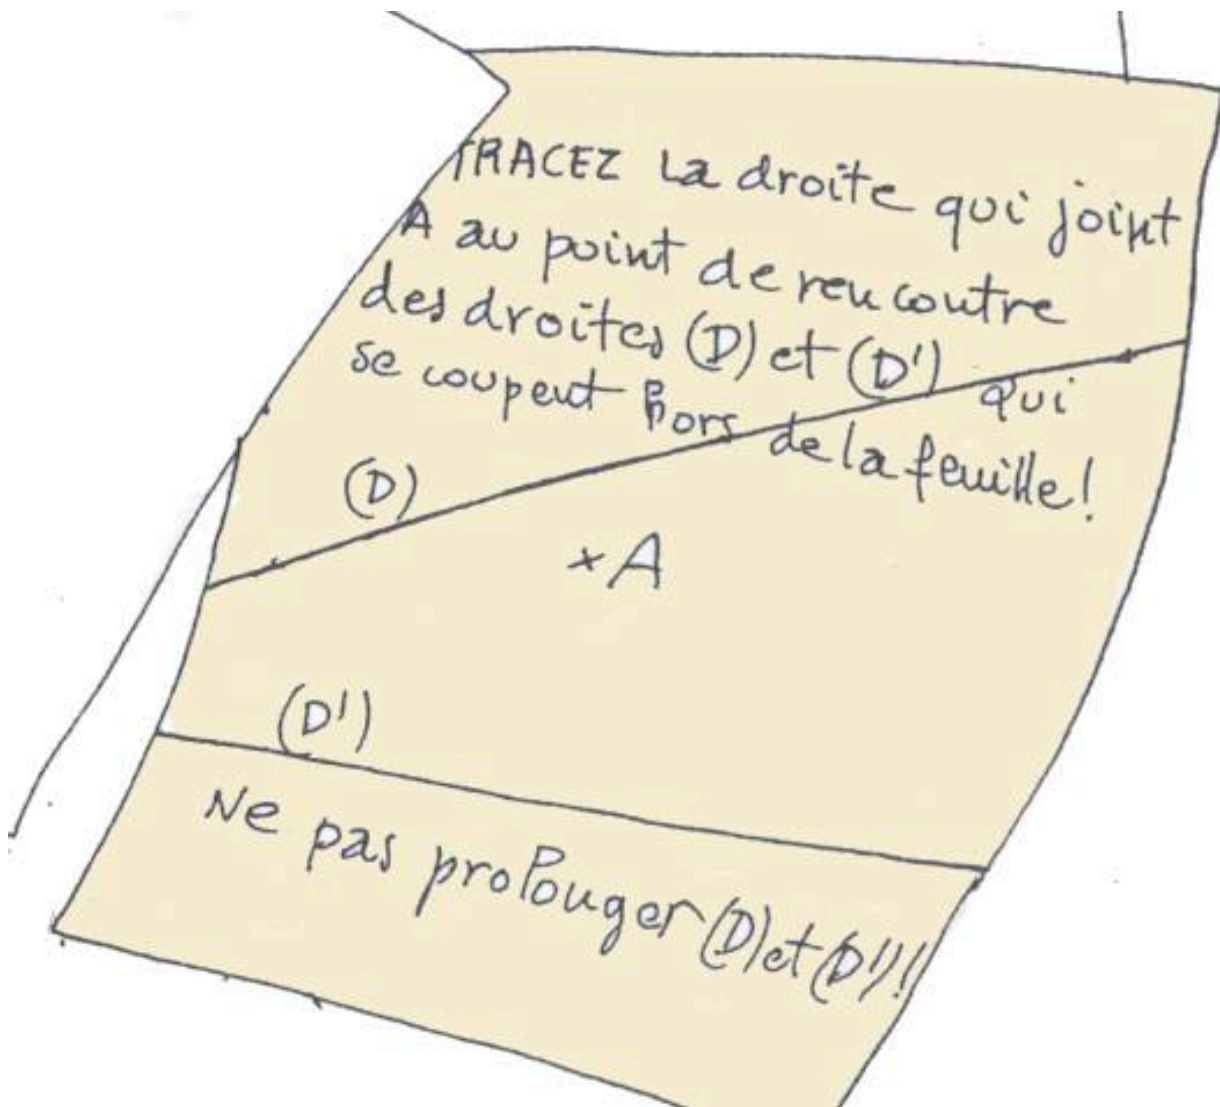 TRACEZ La droite qui joint
A au point de rencontre
des droites (D) et (D') qui
se coupent hors de la feuille!
(D)
×A
(D')
Ne pas prolonger (D) et (D')!